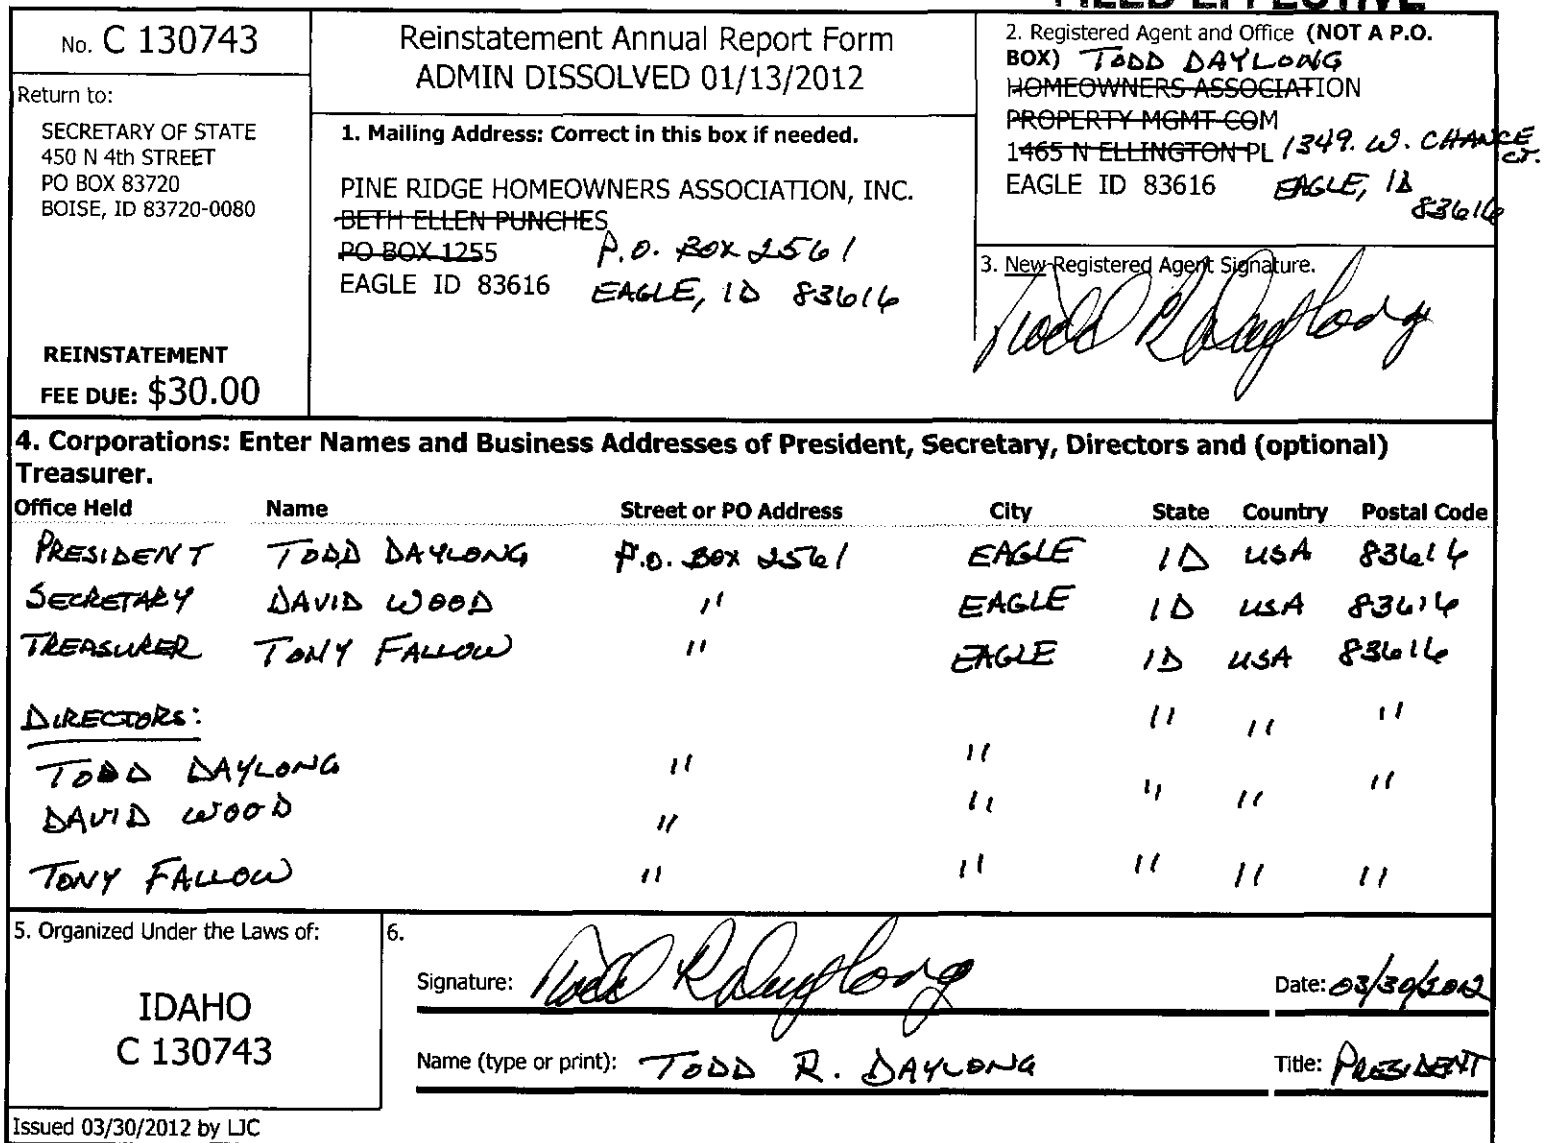 FILED EFFECTIVE
No. C 130743
Return to:
SECRETARY OF STATE
450 N 4th STREET
PO BOX 83720
BOISE, ID 83720-0080
REINSTATEMENT
FEE DUE: $30.00
Reinstatement Annual Report Form
ADMIN DISSOLVED 01/13/2012
1. Mailing Address: Correct in this box if needed.
PINE RIDGE HOMEOWNERS ASSOCIATION, INC.
BETH ELLEN PUNCHES
PO BOX 1255 P.O. BOX 2561
EAGLE ID 83616 EAGLE, ID 83616
2. Registered Agent and Office (NOT A P.O.
BOX) TODD DAYLONG
HOMEOWNERS ASSOCIATION
PROPERTY MGMT COM
1465 N ELLINGTON PL 1349. W. CHANCE CT.
EAGLE ID 83616 EAGLE, ID
83616
3. New Registered Agent Signature.
Todd R Daylong
4. Corporations: Enter Names and Business Addresses of President, Secretary, Directors and (optional)
Treasurer.
Office Held Name Street or PO Address City State Country Postal Code
PRESIDENT TODD DAYLONG P.O. BOX 2561 EAGLE ID USA 83616
SECRETARY DAVID WOOD " EAGLE ID USA 83616
TREASURER TONY FALLOW " EAGLE ID USA 83616
DIRECTORS: " " "
TODD DAYLONG " "
DAVID WOOD " " " " "
TONY FALLOW " " " " "
5. Organized Under the Laws of:
IDAHO
C 130743
6.
Signature: Todd R Daylong Date: 03/30/2012
Name (type or print): TODD R. DAYLONG Title: PRESIDENT
Issued 03/30/2012 by LJC